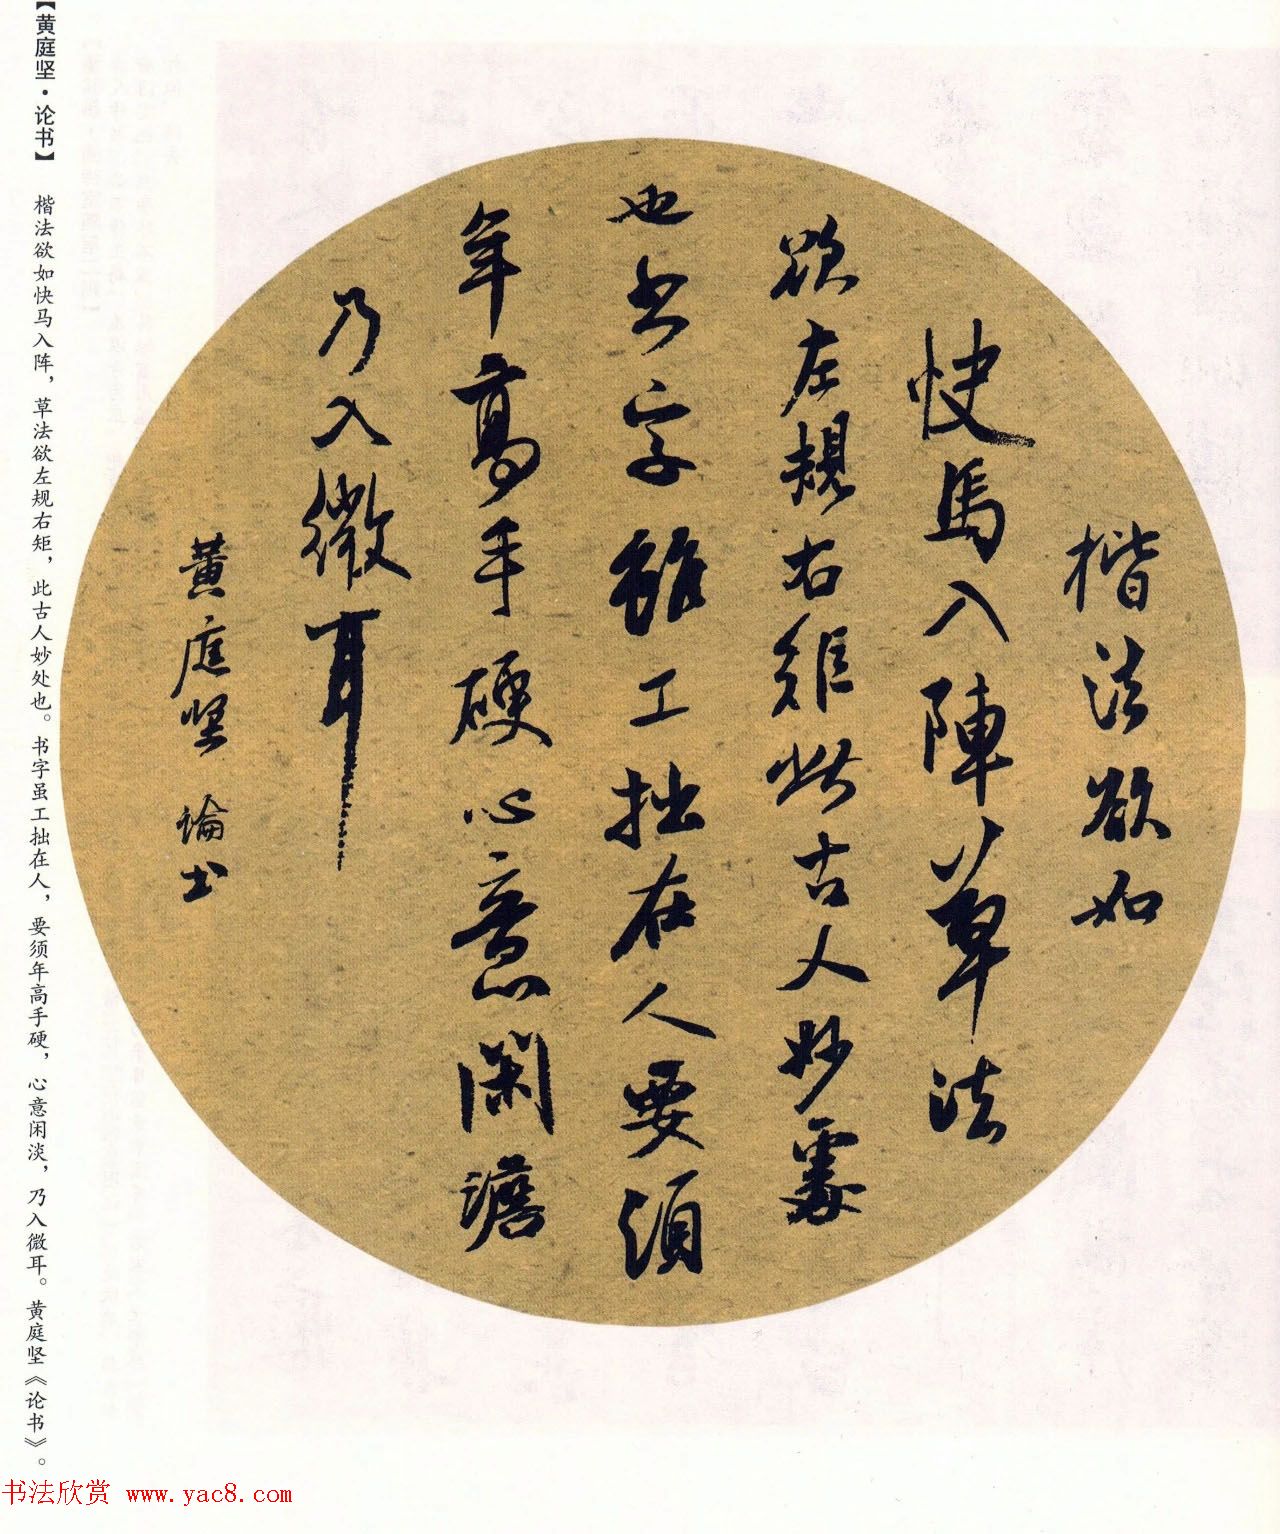 【黄庭坚·论书】 楷法欲如快马入阵，草法欲左规右矩，此古人妙处也。书字虽工拙在人，要须年高手硬，心意闲淡，乃入微耳。黄庭坚《论书》。
楷法欲如
快馬入陣草法
欲左規右矩此古人妙處
也书字雖工拙在人要須
年高手硬心意閑澹
乃入微耳
黄庭坚論书
书法欣赏 www.yac8.com